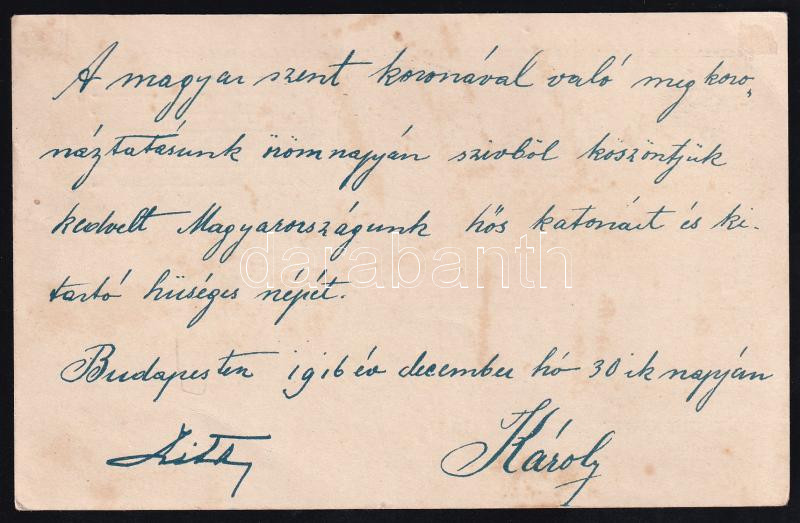 A magyar szent koronával való megkoro„
náztatásunk örömnapján szivből köszöntjük
kedvelt Magyarországunk hős katonáit és ki-
tartó hűséges népét.
darabanth
Budapesten 1916 év december hó 30 ik napján
Zita Károly